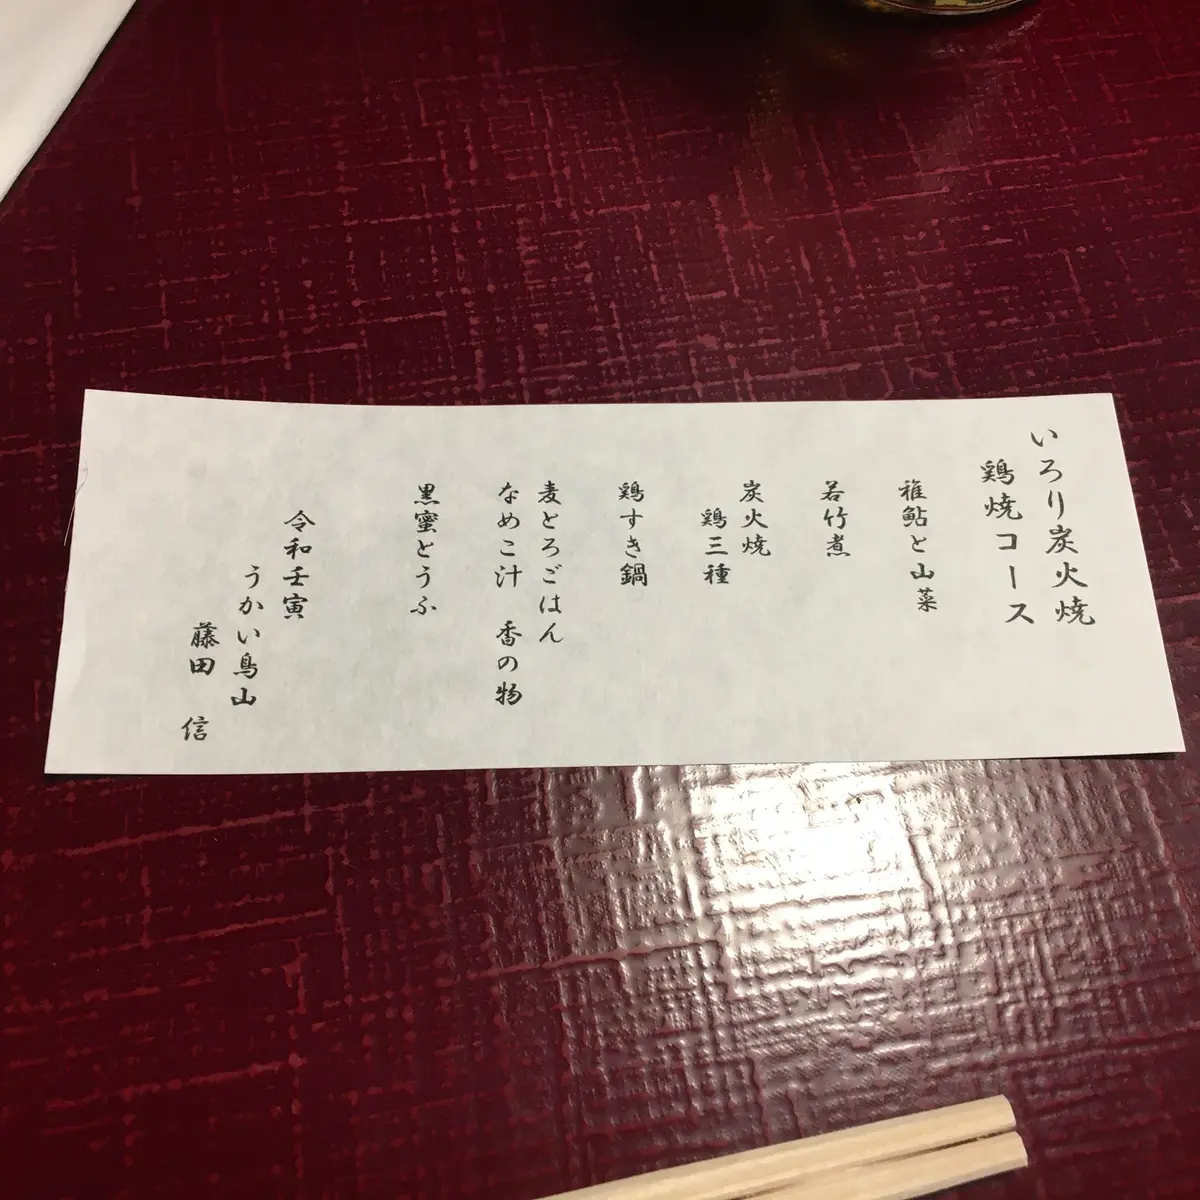 いろり炭火焼
鶏焼コース
稚鮎と山菜
若竹煮
炭火焼
鶏三種
鶏すき鍋
麦とろごはん
なめこ汁 香の物
黒蜜とうふ
令和壬寅
うかい鳥山
藤田 信